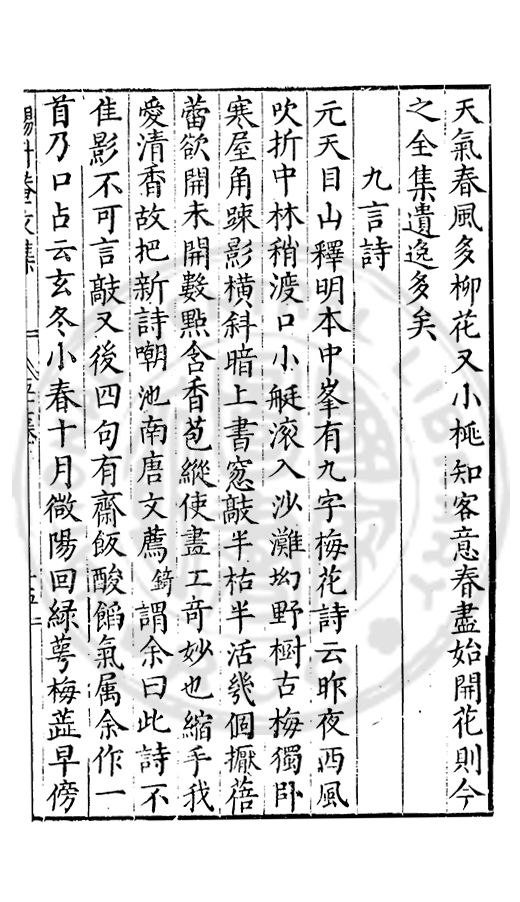 天氣春風多柳花又小桃知客意春盡始開花則今
之全集遺逸多矣
九言詩
元天目山釋明本中峯有九字梅花詩云昨夜西風
吹折中林梢渡口小艇滚入沙灘坳野樹古梅獨卧
寒屋角踈影橫斜暗上書窓敲半枯半活幾個擫蓓
蕾欲開未開數點含香苞縱使畫工奇妙也縮手我
愛清香故把新詩嘲池南唐文薦錡謂余曰此詩不
佳影不可言敲又後四句有齋飯酸餡氣属余作一
首乃口占云玄冬小春十月微陽回緑萼梅蕋早傍